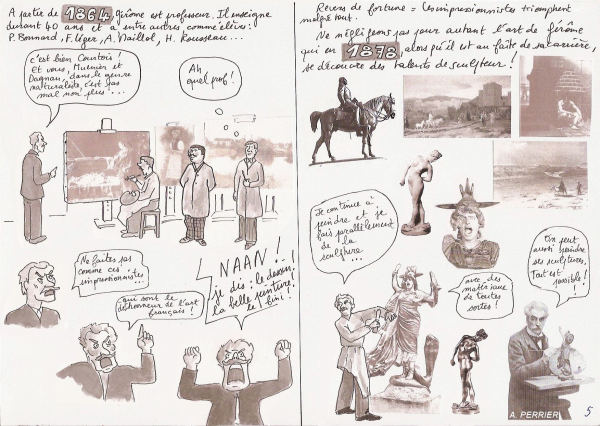 A partir de 1864 Gérôme est professeur. Il enseigne
durant 40 ans et a entre autres, comme élèves :
P. Bonnard, F. Léger, A. Maillol, H. Rousseau...
c'est bien Courtois !
Et vous, Muenier et
Dagnan, dans le genre
naturaliste, c'est pas
mal non plus...
Ah
quel prof !
Ne faites pas
comme ces
impressionnistes...
qui sont le
déshonneur de l'art
français !
NAAN !
je dis : le dessin,
la belle peinture,
le fini !
Revers de fortune = les impressionnistes triomphent
malgré tout.
Ne négligeons pas pour autant l'art de Gérôme
qui en 1878, alors qu'il est au faîte de sa carrière,
se découvre des talents de sculpteur !
Je continue à
peindre et je
fais parallèlement
de la
sculpture...
avec des
matériaux
de toutes
sortes !
On peut
aussi peindre
ses sculptures,
Tout est
possible !
A. PERRIER
5